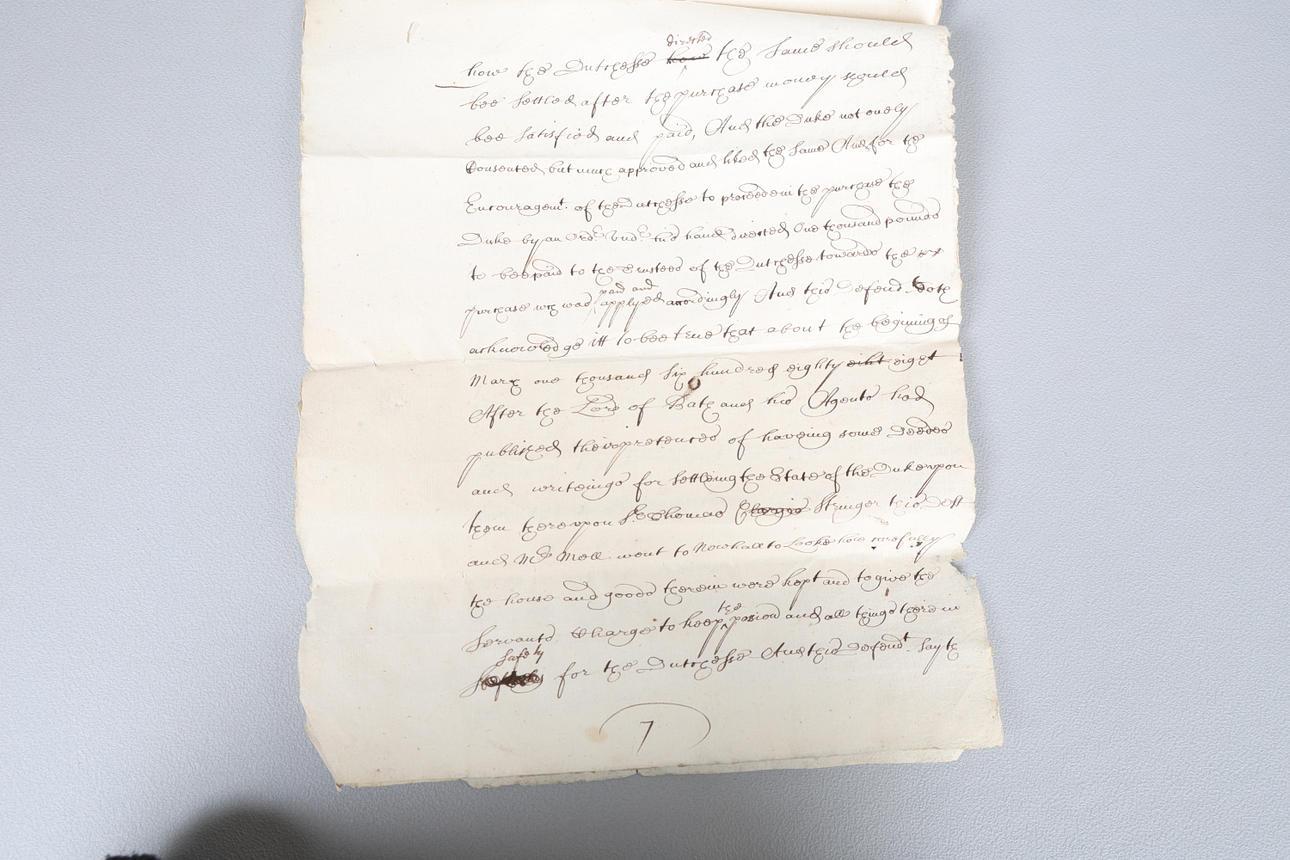 how the Dutchesse directed how the same should
bee settled after the purchase money should
bee satisfied and paid, And the Duke not onely
Consented but much approved and liked the same And for the
Encouragemt. of the Dutchesse to proceede in the purchase the
Duke by an Ordr. undr. his hand directed One thousand pounds
to bee paid to the Trustees of the Dutchesse towards the
purchase wch was paid and applyed accordingly And this Defend. doth
acknowledge itt to bee true that about the begining of
March one thousand six hundred eighty eiht eight
After the Lord of Bath and his Agents had
published their pretences of haveing some Deedes
and writeings for settleing the Estate of the Duke upon
them thereupon Sr. Thomas Clargis Stringer this Deft
and Mr. Mell went to Newhall to Looke how carefully
the house and goods therein were kept and to give the
Servants Charge to keep the possion and all things therein
safely for the Dutchesse And this Defendt. Sayth
7